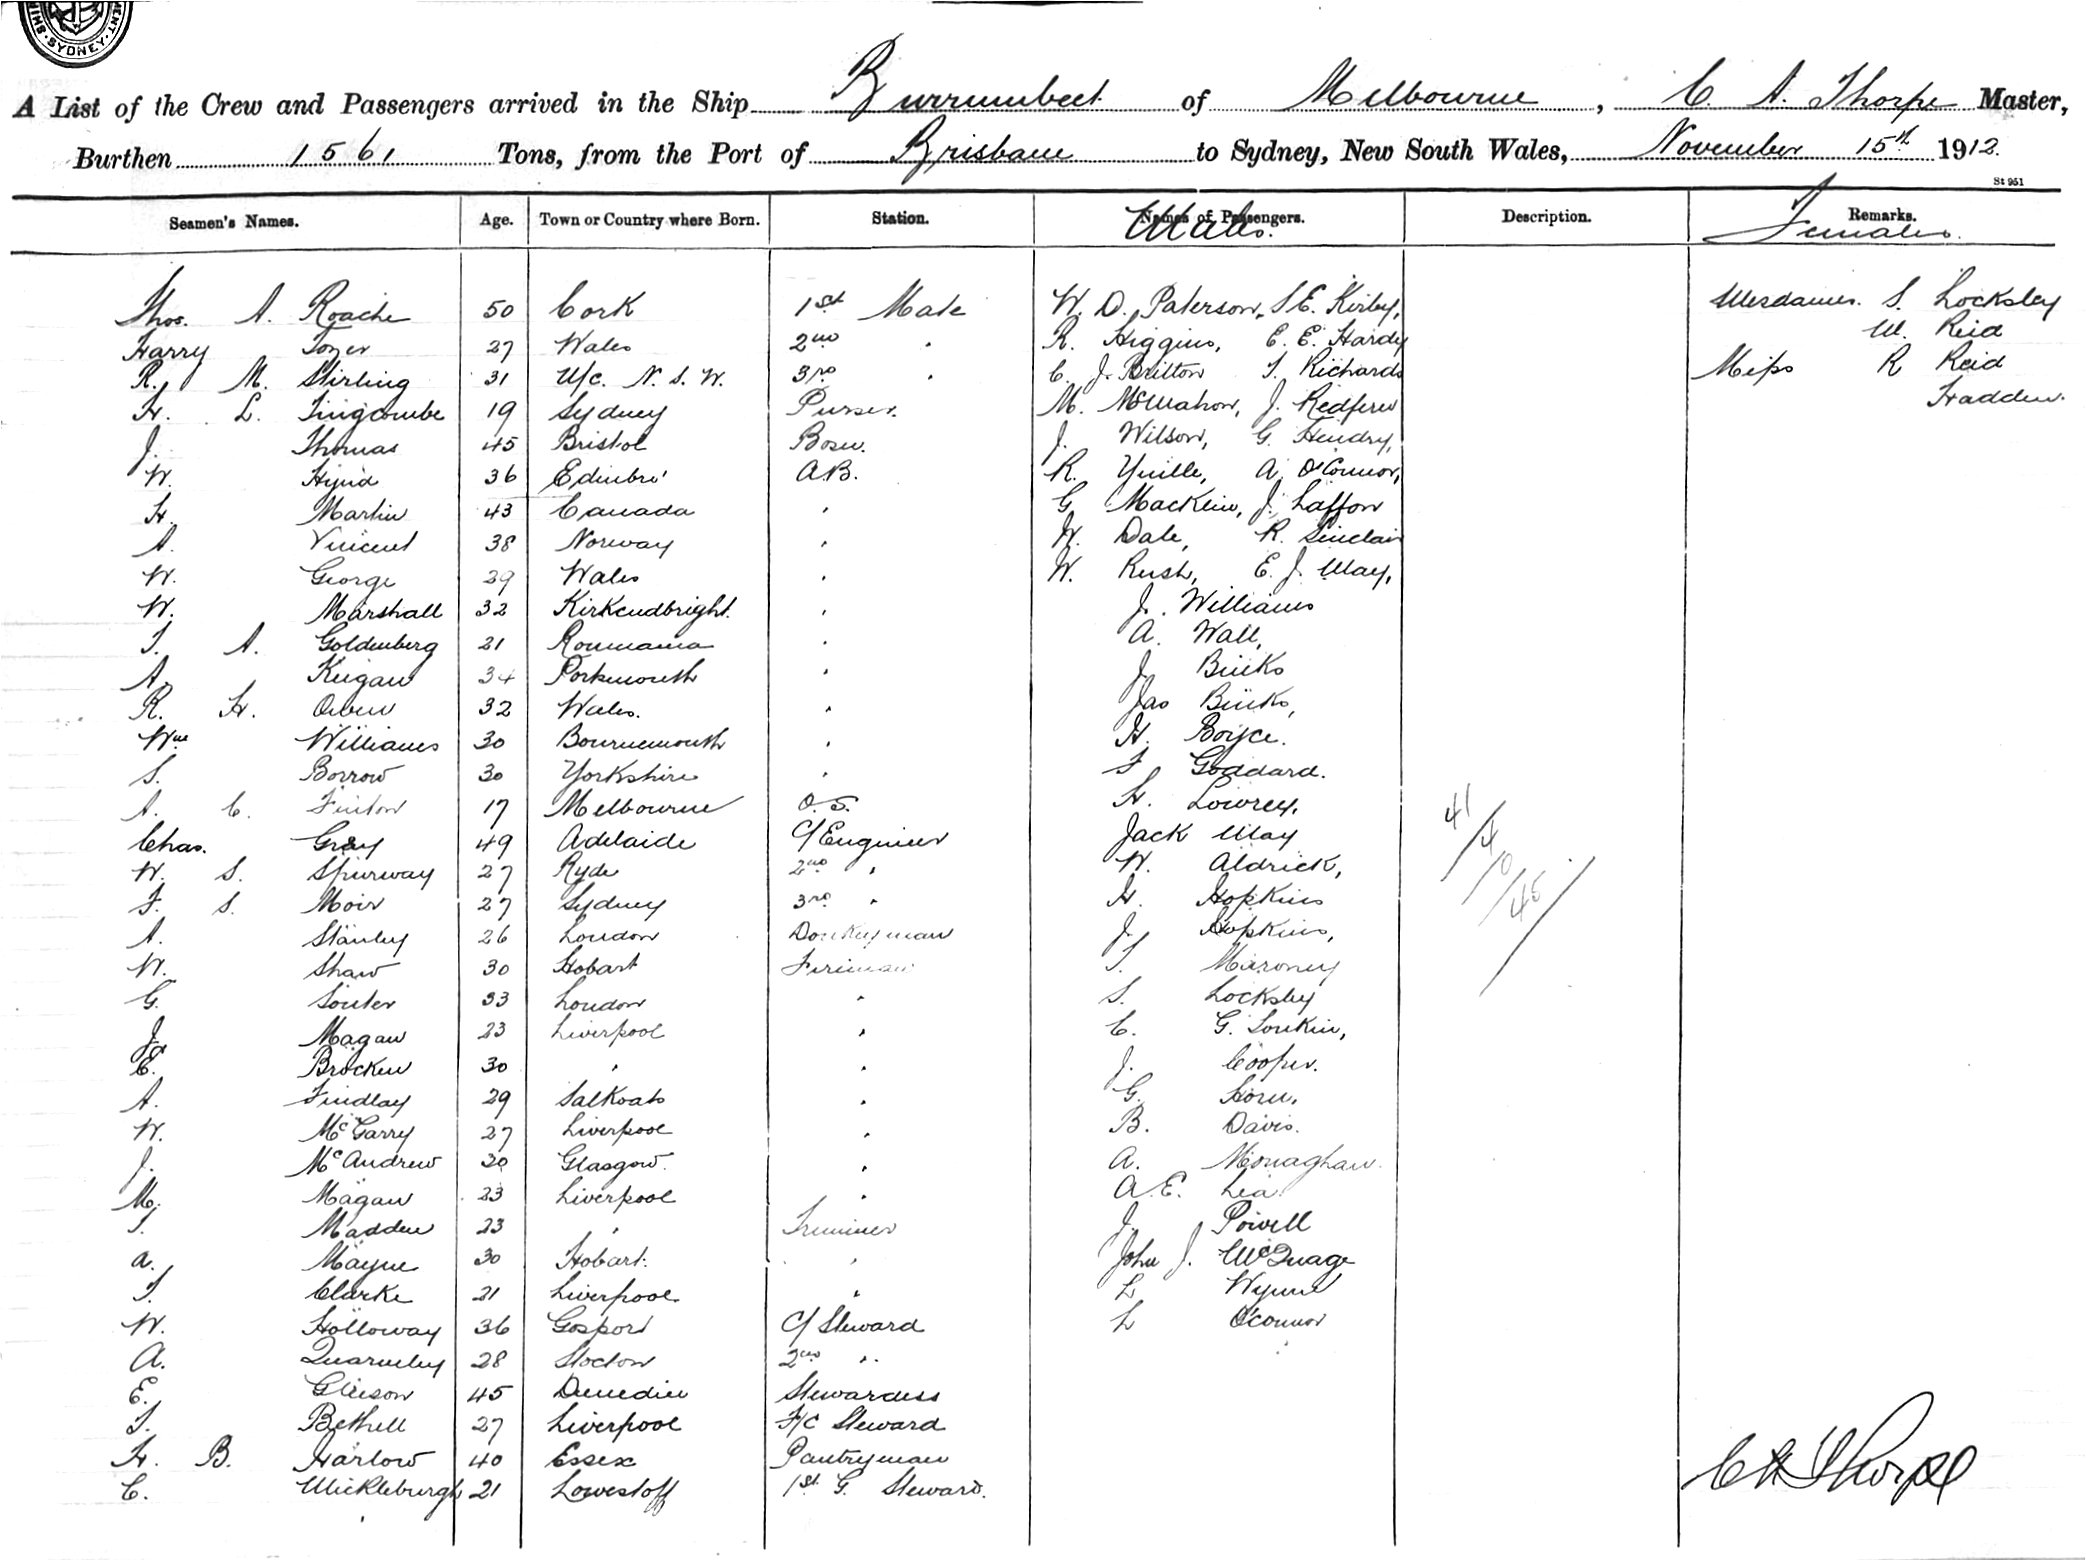 SYDNEY
A List of the Crew and Passengers arrived in the Ship Burrumbeet of Melbourne, C. A. Thorpe Master,
Burthen 1561 Tons, from the Port of Brisbane to Sydney, New South Wales, November 15th 1912.
St 951
Seamen's Names. Age. Town or Country where Born. Station. Names of Passengers. Description. Remarks.
Males. Females.
Thos. A. Roache 50 Cork 1st Mate W. D. Paterson, S. E. Kirby, Mesdames. S. Locksley
Harry Tozer 27 Wales 2nd " R. Higgins, E. E. Hardy W. Reid
R. M. Stirling 31 U/c. N. S. W. 3rd " C. J. Britton T. Richards Miss R Reid
H. L. Tingcombe 19 Sydney Purser. M. McMahon, J. Redfern Hadden.
J. Thomas 45 Bristol Bosn. J. Wilson, G. Hendry,
W. Hynd 36 Edinbro' A.B. R. Yuille, A. O'Connor,
H. Martin 43 Canada " G Mackein, J. Laffon
A. Vincent 38 Norway " W. Dale, R. Sinclair
W. George 29 Wales " W. Rush, E. J. May,
W. Marshall 32 Kirkcudbright. " J. Williams
T. A. Goldenberg 21 Roumania " A. Wall,
A. Keigan 34 Portsmouth " J. Binks
R. H. Owen 32 Wales. " Jas Binks,
Wm Williams 30 Bournemouth " H. Boyce.
S. Borrow 30 Yorkshire " F Goddard.
A. C. Finton 17 Melbourne O.S. H. Lowrey,
Chas. Gray 49 Adelaide C/Engineer Jack May 41/4
W. S. Spurway 27 Ryde 2nd " W. Aldrick, 0/45
F. S. Moir 27 Sydney 3rd " H. Hopkins
A. Stanley 26 London Donkeyman J. Hopkins,
W. Shaw 30 Hobart Fireman T. Maroney
G. Souter 33 London " S. Locksley
J. Magan 23 Liverpool " C. G. Lonkin,
E. Brocken 30 " " J. Cooper.
A. Findlay 29 Salkoats " G. Horn,
W. McGarry 27 Liverpool " B. Davis.
J. McAndrew 30 Glasgow. " A. Monaghan.
M. Magan 23 Liverpool " A. E. Lea
T. Madden 23 " Trimmer J. Powell
A. Mayne 30 Hobart. " John J. McQuage
T. Clarke 21 Liverpool " L Wynne
W. Holloway 36 Gosport C/ Steward L O'Connor
A. Quarmley 28 Stocton 2nd "
E. Gleeson 45 Dunedin Stewardess
T. Bethell 27 Liverpool F/C Steward
H. B. Harlow 40 Essex Pantryman
C. Mickleburgh 21 Lowestoff 1st G. Steward.
C A Thorpe